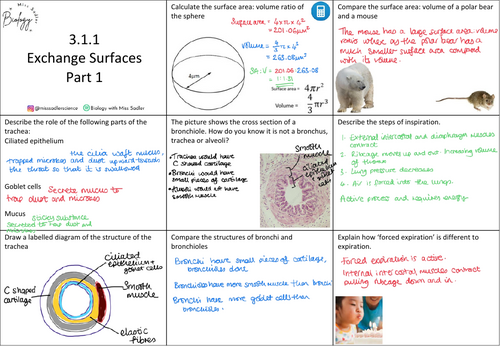 Miss Sadler
Biology
3.1.1
Exchange Surfaces
Part 1
@missadlerscience
Biology with Miss Sadler
Calculate the surface area: volume ratio of
the sphere
Surface area = 4 x π x 4²
= 201.06µm²
Volume = 4/3 x π x 4³
= 268.08µm³
SA:V = 201.06:268.08
1:1.3
4µm
Surface area = 4πr²
Volume = 4/3 πr³
Compare the surface area: volume of a polar bear
and a mouse
The mouse has a large surface area: volume
ratio where as the polar bear has a
much smaller surface area compared
with its volume.
Describe the role of the following parts of the
trachea:
Ciliated epithelium
the cilia waft mucus,
trapped microbes and dust upwards towards
the throat so that it is swallowed
Goblet cells
Secrete mucus to
trap dust and microbes
Mucus
substance
secreted to trap dust and
The picture shows the cross section of a
bronchiole. How do you know it is not a bronchus,
trachea or alveoli?
• Trachea would have
C shaped cartilage
• Bronchi would have
small pieces of cartilage
• Alveoli would not have
smooth muscle
smooth
muscle
ciliated
epithelium
goblet
cells
Describe the steps of inspiration.
1. External intercostal and diaphragm muscles
contract
2. Ribcage moves up and out. Increasing volume
of thorax
3. Lung pressure decreases
4. Air is forced into the lungs.
Active process and requires energy
Draw a labelled diagram of the structure of the
trachea
C shaped
cartilage
Ciliated
epithelium +
goblet cells
Smooth
muscle
elastic
fibres
Compare the structures of bronchi and
bronchioles
Bronchi have small pieces of cartilage,
bronchioles dont
Bronchioles have more smooth muscle than bronchi
Bronchi have more goblet cells than
bronchioles.
Explain how ‘forced expiration’ is different to
expiration.
Forced expiration is active.
Internal intercostal muscles contract
pulling ribcage down and in.